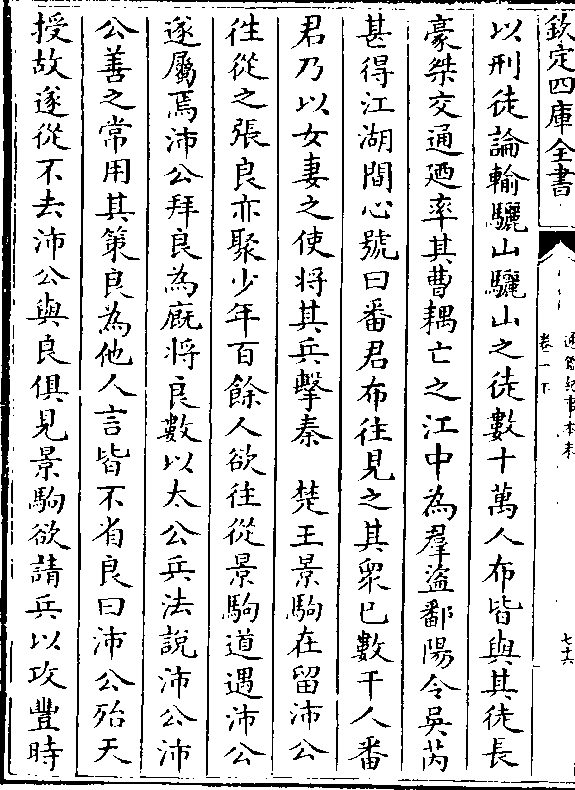 欽定四庫全書
通鑑紀事本末
卷一下
七十六
以刑徒論輸驪山驪山之徒數十萬人布皆與其徒長
豪桀交通廼率其曹耦亡之江中為羣盜鄱陽令吳芮
甚得江湖間心號曰番君布往見之其衆已數千人番
君乃以女妻之使將其兵擊秦　楚王景駒在留沛公
往從之張良亦聚少年百餘人欲往從景駒道遇沛公
遂屬焉沛公拜良為廐將良數以太公兵法說沛公沛
公善之常用其策良為他人言皆不省良曰沛公殆天
授故遂從不去沛公與良俱見景駒欲請兵以攻豐時